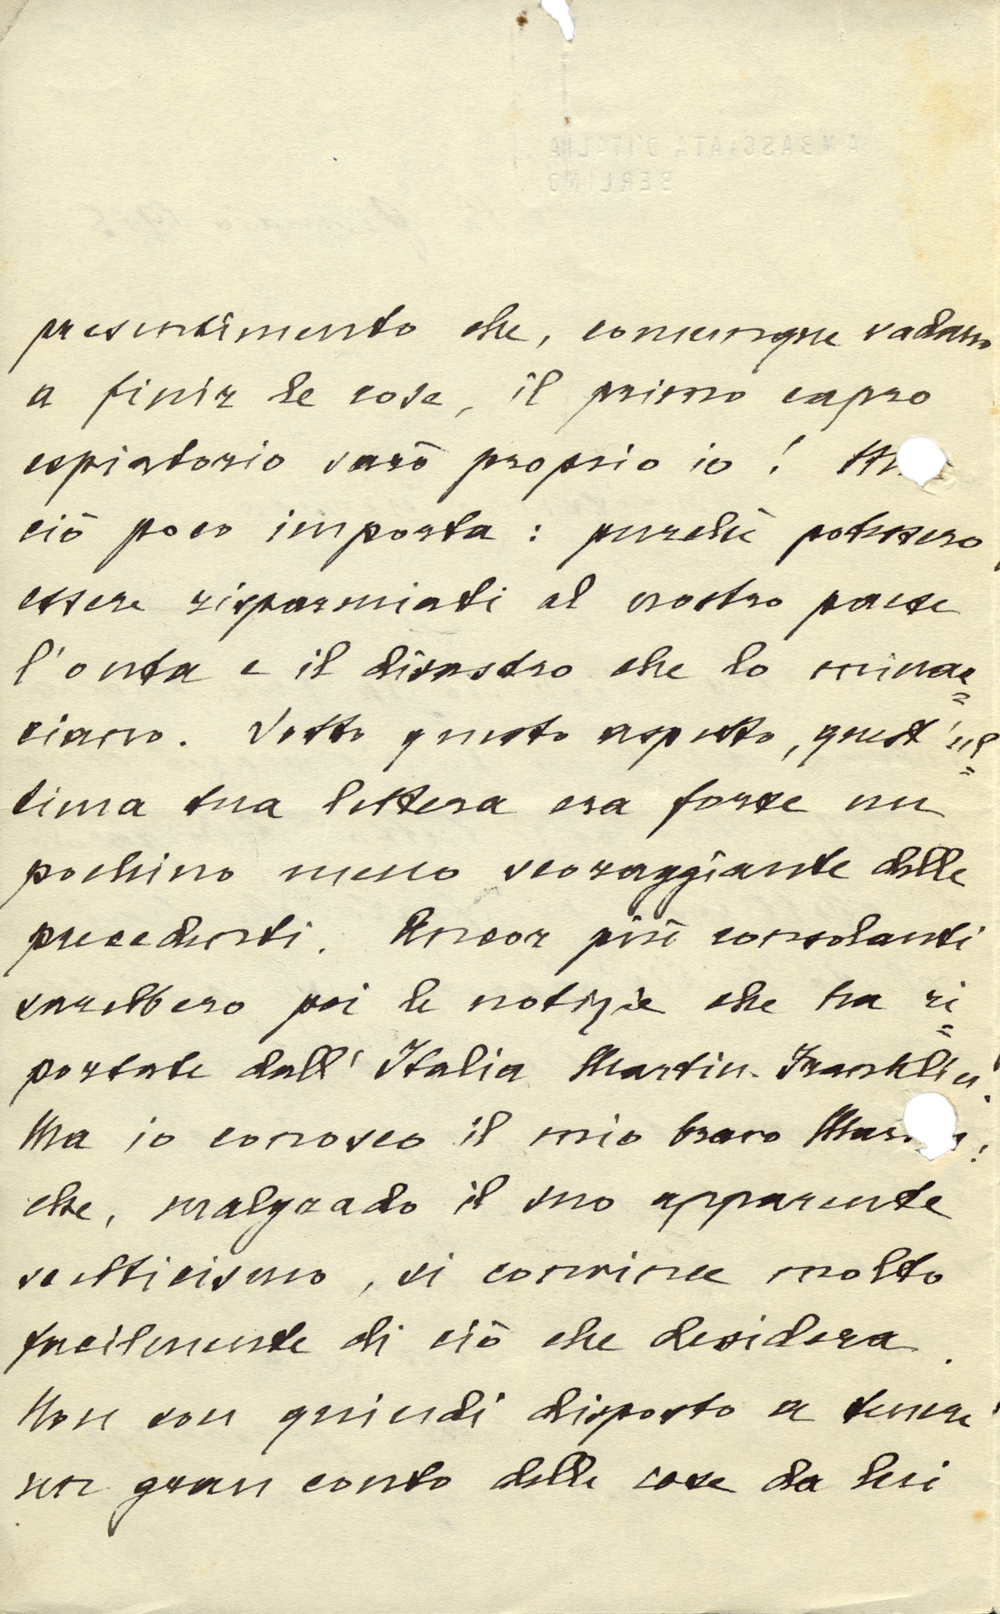 AMBASCIATA D'ITALIA
BERLINO
presentimento che, comunque vadano
a finir le cose, il primo capro
espiatorio sarò proprio io! Ma
ciò poco importa: purchè potessero
essere risparmiati al nostro paese
l'onta e il disastro che lo minac=
ciano. Sotto questo aspetto, quest'ul=
tima tua lettera era forse un
pochino meno scoraggiante delle
precedenti. Ancor più consolanti
sarebbero poi le notizie che ha ri=
portate dall'Italia Martin-Franklin.
Ma io conosco il mio bravo Martin!
che, malgrado il suo apparente
scetticismo, si convince molto
facilmente di ciò che desidera.
Non son quindi disposto a tenere
un gran conto delle cose da lui